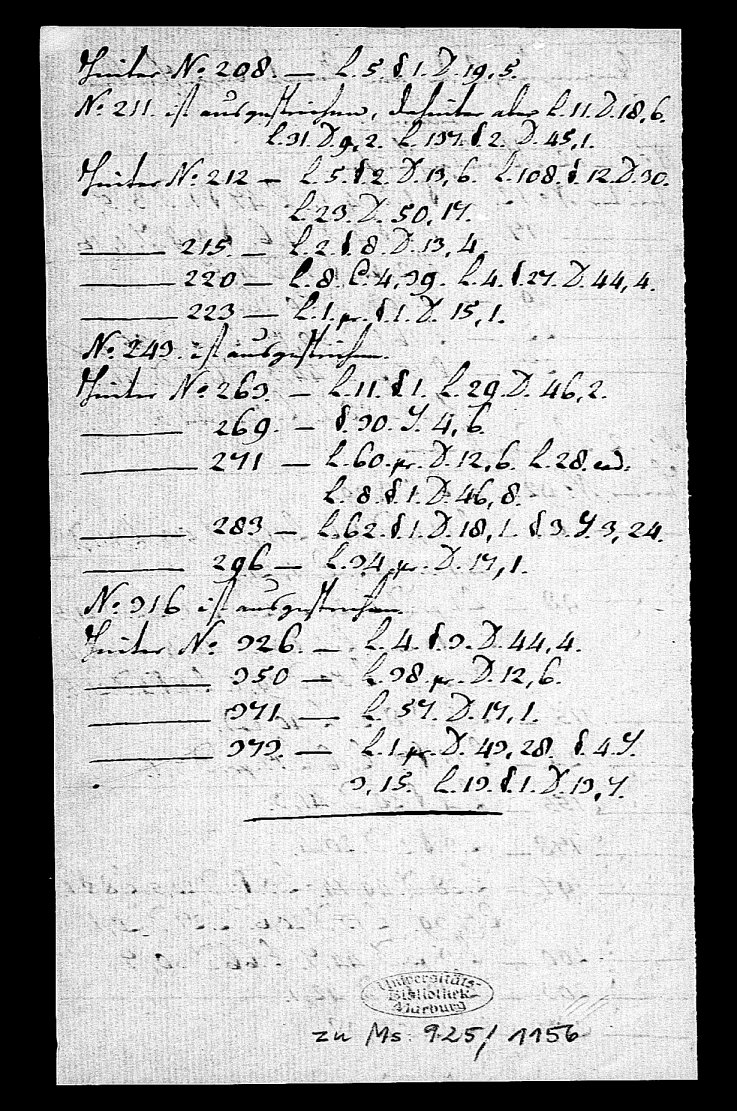 Hinter No 208. — L. 5. §. 1. D. 19, 5.
No 211. ist ausgestrichen, dahinter aber L. 11. D. 18, 6.
L. 31. D. 9, 2. L. 137. §. 2. D. 45, 1.
Hinter No 212 — L. 5. §. 2. D. 13, 6. L. 108. §. 12. D. 30.
L. 23. D. 50, 17.
——— 215. — L. 2. §. 8. D. 13, 4.
——— 220 — L. 8. C. 4, 39. L. 4. §. 27. D. 44, 4.
——— 223 — L. 1. pr. §. 1. D. 15, 1.
No 243. ist ausgestrichen.
Hinter No 263. — L. 11. §. 1. L. 29. D. 46, 2.
——— 269. — §. 30. J. 4, 6.
——— 271 — L. 60. pr. D. 12, 6. L. 28. ed.
L. 8. §. 1. D. 46, 8.
——— 283 — L. 62. §. 1. D. 18, 1. §. 3. J. 3, 24.
——— 296 — L. 34. pr. D. 17, 1.
No 316 ist ausgestrichen.
Hinter No 326. — L. 4. §. 3. D. 44, 4.
——— 350 — L. 38. pr. D. 12, 6.
——— 371. — L. 57. D. 17, 1.
——— 373. — L. 1. pr. D. 43, 28. §. 4. J.
3, 15. L. 13. §. 1. D. 13, 7.
Universitäts-
Bibliothek
Marburg
zu Ms. 925/1156